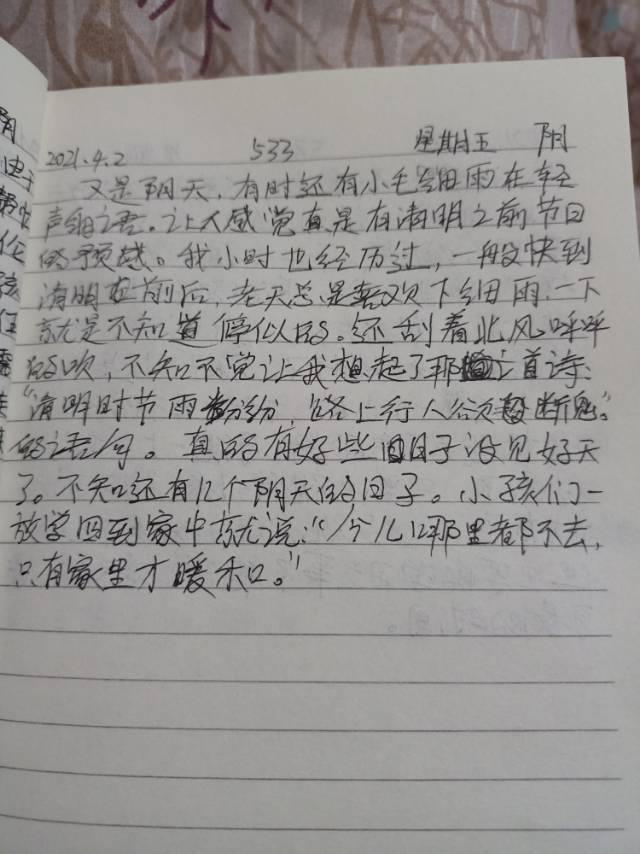 2021.4.2 533 星期五 阴
又是阴天，有时还有小毛细雨在轻
声细语。让人感觉真是有清明之前节日
的预感。我小时也经历过，一般快到
清明在前后，老天总是喜欢下细雨，一下
就是不知道停似的。还刮着北风呼呼
的吹，不知不觉让我想起了那首诗：
“清明时节雨纷纷，路上行人欲断魂。”
的语句。真的有好些日子没见好天
了。不知还有几个阴天的日子。小孩们一
放学回到家中就说：“今儿哪里都不去，
只有家里才暖和。”